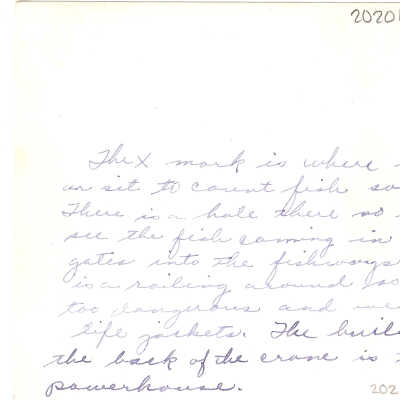 2020
The X mark is where
or sit to count fish so
There is a hole there so
see the fish coming in
gates into the fishways
is a railing around so
too dangerous and we
life jackets. The buil
the back of the crane is
powerhouse.
202